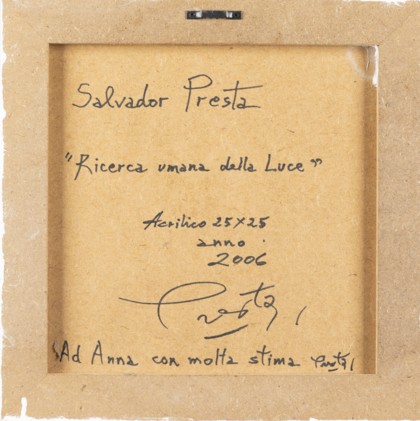 Salvador Presta
"Ricerca umana della Luce"
Acrilico 25x25
anno
2006
Presta
Ad Anna con molta stima Presta